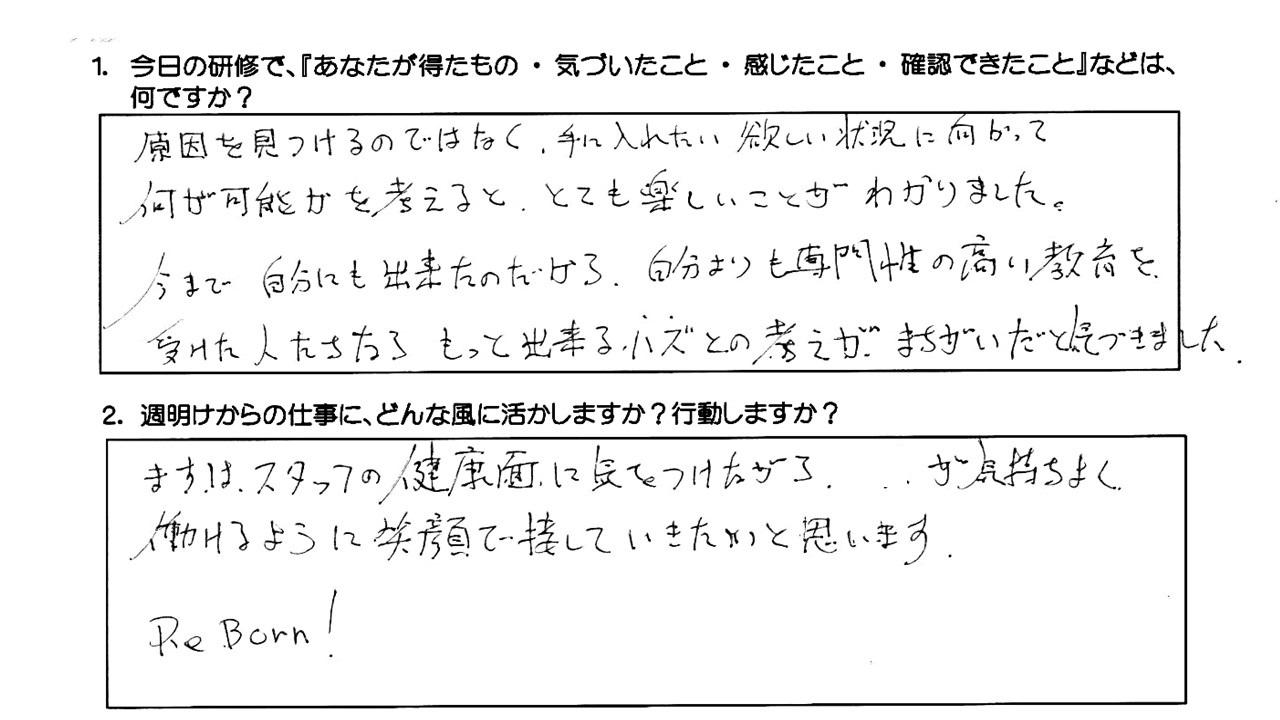 1. 今日の研修で、『あなたが得たもの・気づいたこと・感じたこと・確認できたこと』などは、
何ですか？
原因を見つけるのではなく、手に入れたい欲しい状況に向かって
何が可能かを考えると、とても楽しいことがわかりました。
今まで自分にも出来たのだから、自分よりも専門性の高い教育を、
受けた人たちなら もっと出来るハズとの考えが、まちがいだと気づきました、
2. 週明けからの仕事に、どんな風に活かしますか？行動しますか？
まずは、スタッフの健康面に気をつけながら、 が気持ちよく
働けるように笑顔で接していきたいと思います.
Re Born!